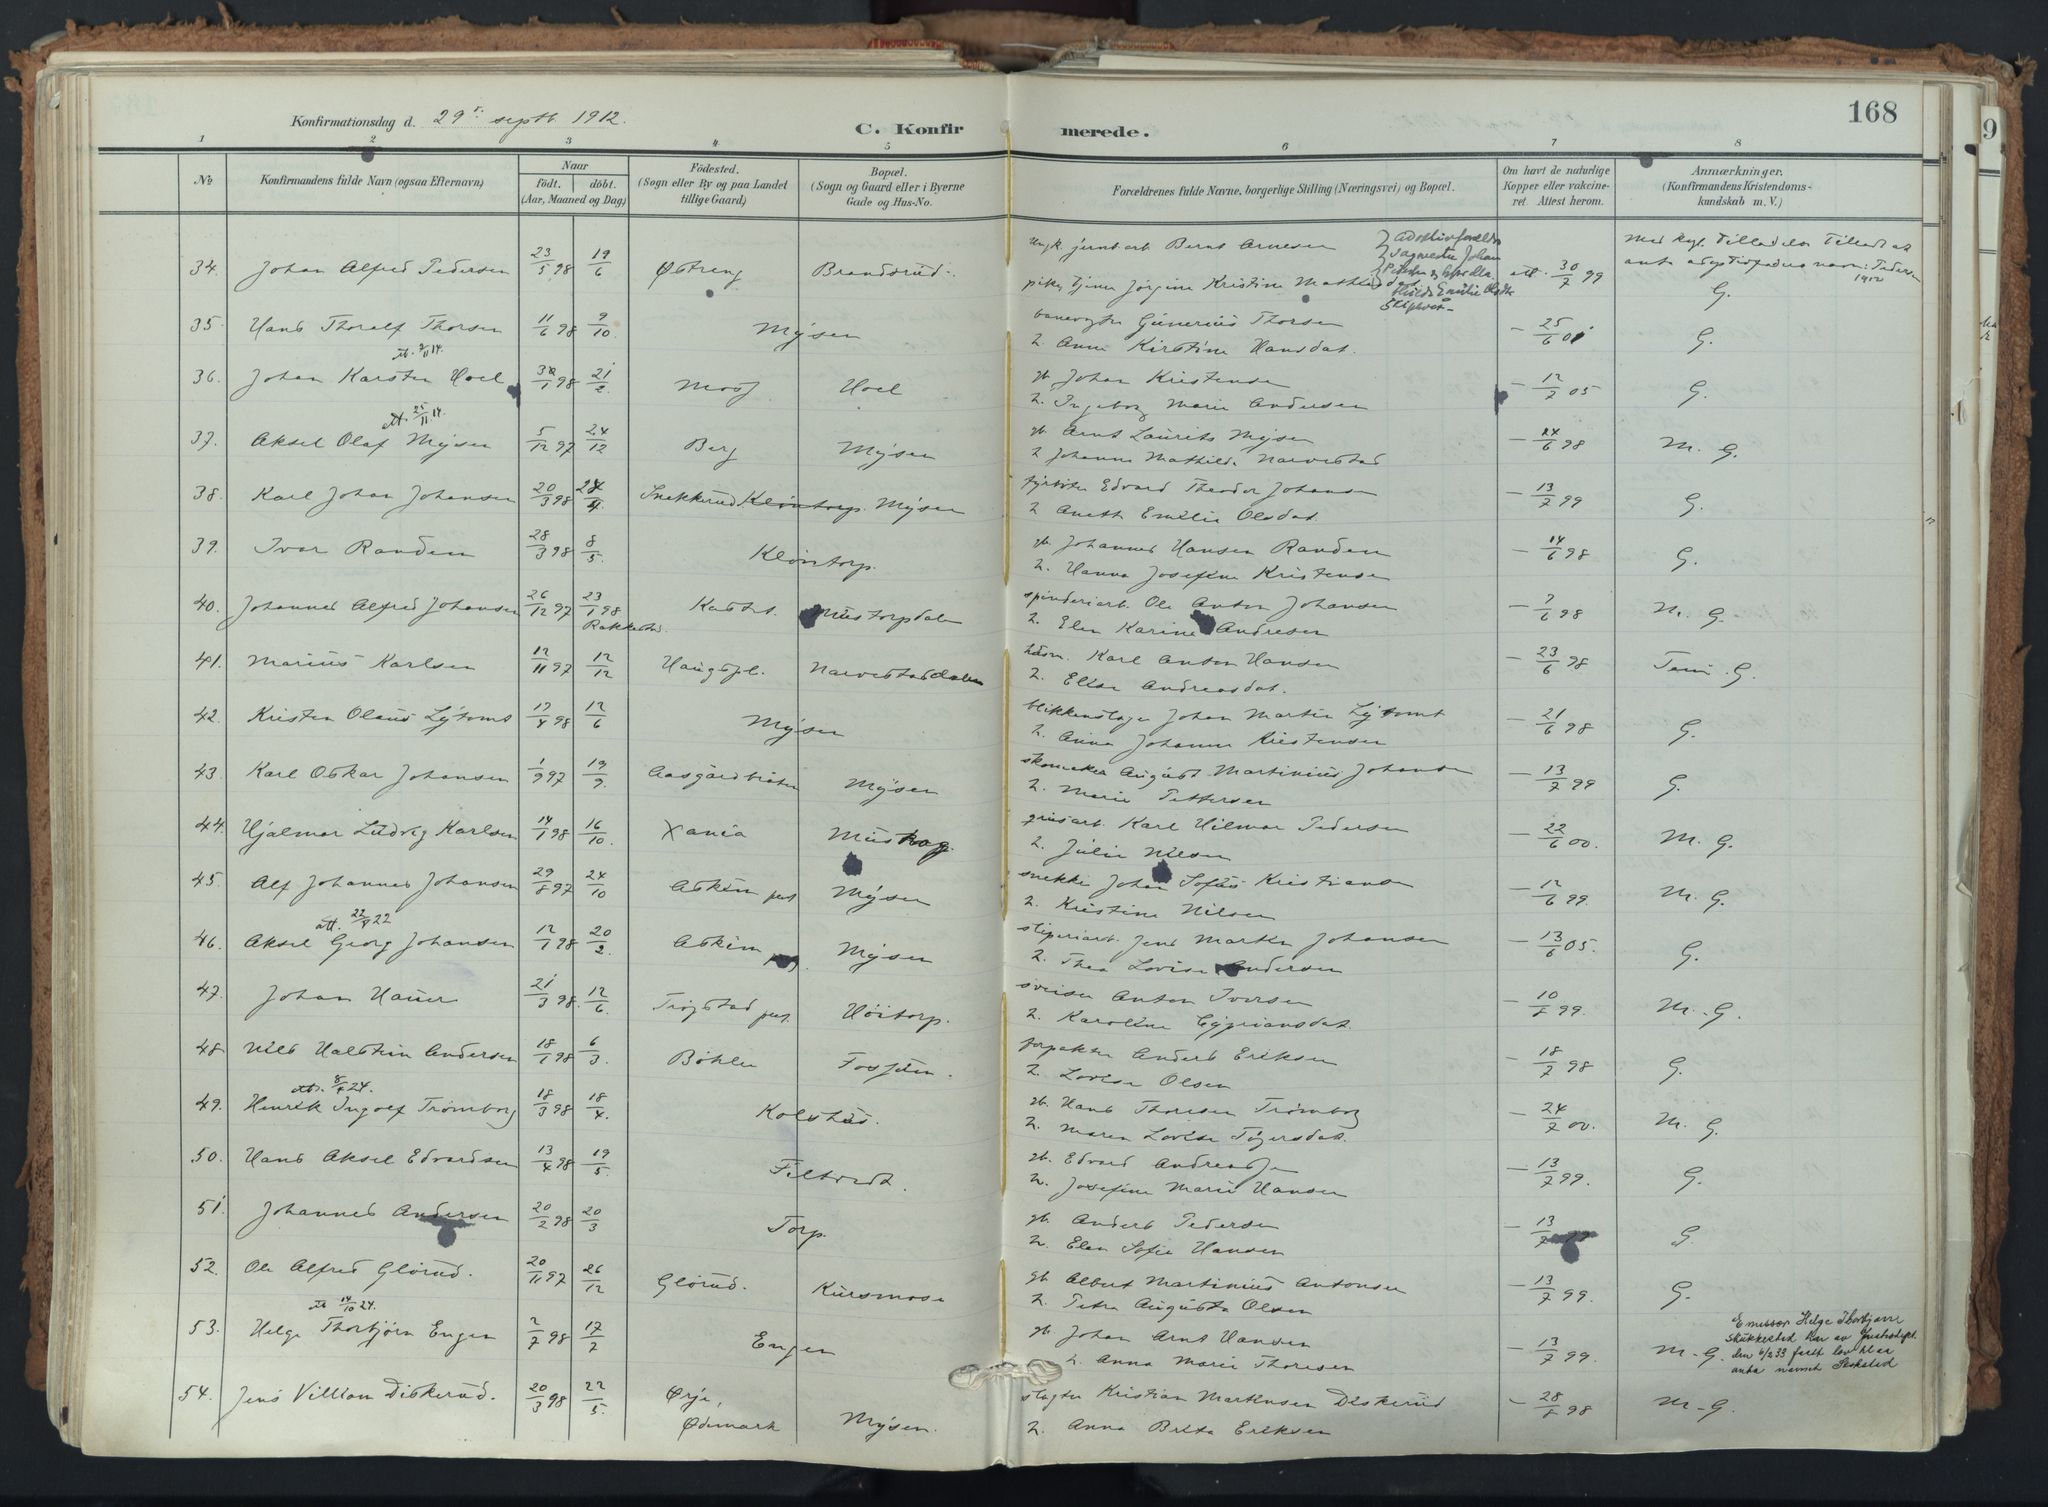 168
Konfirmationsdag d. 29. septb. 1912.
C. Konfirmerede.
1 2 3 4 5 6 7 8
No
Konfirmandens fulde Navn (ogsaa Efternavn)
Naar
födt. döbt.
(Aar, Maaned og Dag)
Födested.
(Sogn eller By og paa Landet
tillige Gaard)
Bopæl.
(Sogn og Gaard eller i Byerne
Gade og Hus-No.
Forældrenes fulde Navne, borgerlige Stilling (Næringsvei) og Bopæl.
Om havt de naturlige
Kopper eller vakcine-
ret Attest herom.
Anmærkninger.
(Konfirmandens Kristendoms-
kundskab m. V.)
34. Johan Alfred Pedersen 23/5 98 19/6 Østreng Brandsrud. Ungk. jernb.arb. Bernt Arnesen
pike, tjener Jørgine Kristine 30/7 99 G.
35. Hans Thoralf Thorsen 11/6 98 9/10 Mysen banevogter Gunerius Thorsen
Anne Kirstine Hansdat. 25/6 01 G.
36. Johan Karsten Hoel 1 98 21/2 Moss Hoel gb. Johan Kristensen
Ingeborg Marie Andersen 12/7 05 G.
att. 25/11 14.
37. Aksel Olaf Mysen 5/12 97 24/12 Berg Mysen gb. Arnt Laurits Mysen
Johanne Mathilde Narvestad 6 98 M. G.
38. Karl Johan Johansen 20/3 98 24/4 Snekkerud Kløntorp. Mysen fyrbøter Edvard Theodor Johansen
Anette Emilie Olsdat. 13/7 99 G.
39. Ivar Randem 28/3 98 8/5. Kløntorp. gb. Johannes Hansen Randem
Hanna Josefine Kristensen 14/6 98 G.
40. Johannes Alfred Johansen 26/12 97 23/1 98 Rakkestad. Mustorpdalen spinderiarb. Ole Anton Johansen
Elen Karine Andresen 7/6 98 M. G.
41. Marius Karlsen 12/11 97 12/12 Narvestaddalen husm. Karl Anton Hansen
Elise Andreasdat. 23/6 98 G.
42. Kristen Olaus Lytomt 17/4 98 12/6 Mysen blikkenslager Johan Martin Lytomt
Anna Johanne Kristensen 21/6 98 G.
43. Karl Oskar Johansen 1/9 97 19/9. Aasgårdbråten Mysen skomaker August Martinius Johansen
Marie Pettersen 13/7 99 G.
44. Hjalmar Ludvig Karlsen 14/1 98 16/10 Xania grusarb. Karl Hilmar Pedersen
Julie Nilsen 22/6 00. M. G.
45. Alf Johannes Johansen 29/8 97 24/10 Askim pgd. Mysen snekker Johan Sofus Kristiansen
Kristine Nilsen 12/6 99. M. G.
att. 22/9 22
46. Aksel Georg Johansen 12/1 98 20/2. Askim Mysen sliperiarb. Jens Martin Johansen
Thea Lovise Andersen 13/6 05. G.
47. Johan Hauer 21/3 98. 12/6. Trøgstad Høitorp. sveiser Anton Iversen
Karoline Cypriansdat. 10/8 99. M. G.
48. Nils Halstein Andersen 18/1 98 6/3. Bøhler Fossum. forpakter Anders Eriksen
Lovise Olsen 18/7 98 G.
24.
49. Henrik Ingolf Trømborg 18/3 98 18/4. Kolshus. gb. Hans Thoresen Trømborg
Maren Lovise Tøgersdat. 24/7 00. M. G.
50. Hans Aksel Edvardsen 13/4 98 19/5. Filtvedt. gb. Edvard Andreassen
Josefine Marie Hansen 13/7 99. G.
51. Johannes Andersen 20/2 98 20/3 Torp. gb. Anders Pedersen
Elen Sofie Hansen 13/7 G.
52. Ole Alfred Glørud. 20/11 97 26/12 Glørud. Kursmose gb. Albert Martinius Antonsen
Petra Augusta Olsen 13/7 99. G.
14/10 24.
53. Helge Thorbjørn Engen 2/7 98 17/7 Engen gb. Johan Arnt Hansen
Anna Marie Thoresen 13/7 99. M-G.
Emissær Helge Thorbjørn
har av Justisdept.
den 6/2 33 faatt lov til aa
anta navnet
54. Jens Villiam Diskerud. 20/3 98 22/5. Ørje, Ødemark Mysen. slagter Kristian Martinsen Diskerud
Anna Brita Eriksen 28/8 98 M-G.